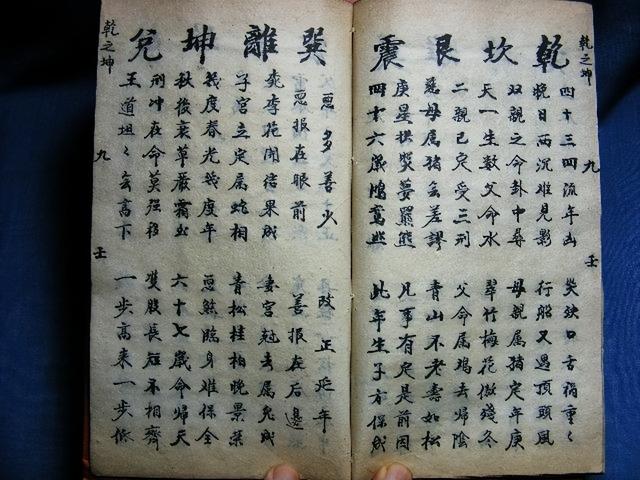 乾之坤 九 壬
乾 坎 艮 震
四十三四流年凶 災缺口舌禍重〻
晚日西沉难見影 行船又遇頂頭風
双親之命卦中尋 母親属猪定年庚
天一生数父命水 翠竹梅花傲殘冬
二親已定受三刑 父命属鸡去帰陰
慈母属猪無差謬 青山不老壽如松
庚星拱 夢羆熊 凡事有定是前因
四十六歲鴻鸞照 此年生子方保成
巽 離 坤 兌
惡多善火 改正延年
惡报在眼前 善报在后邊
桃李花開結果成 妻宫尅去属兔成
子宫立定属蛇相 青松桂柏晚景荣
幾度春光幾度年 臨身难保全
秋後衰草嚴霜出 六十七歲命帰天
刑冲在命莫强移 雙股長短不相齊
王道坦〻 高下 一步高來一步低
乾之坤 九 壬